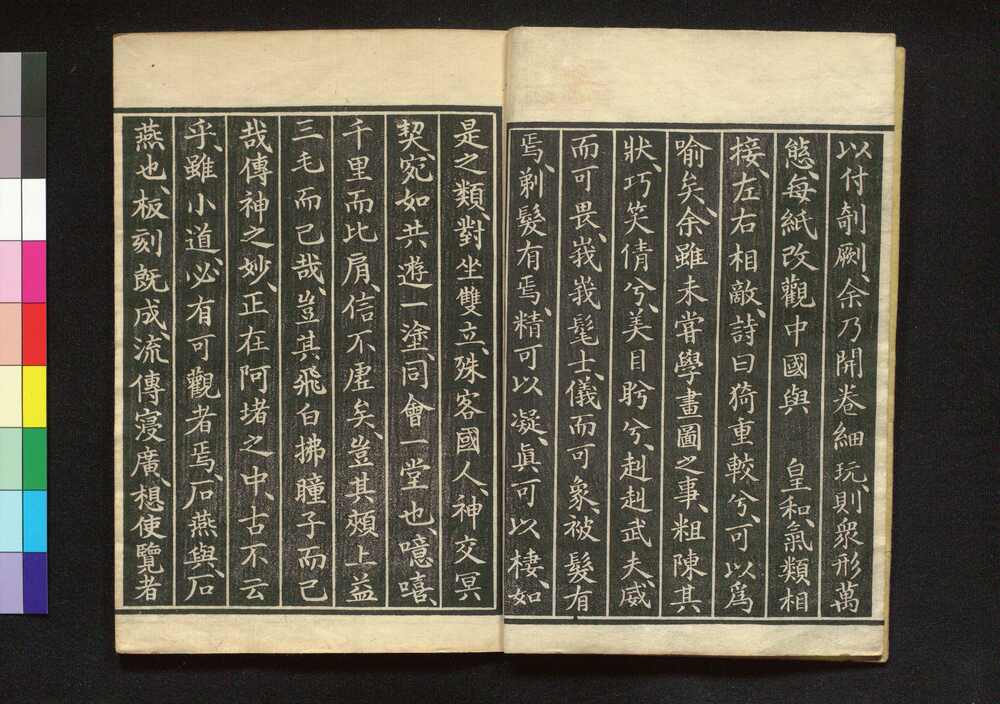 以付剞劂、余乃開卷細玩、則衆形萬
態、每紙改觀中國與　皇和、氣類相
接、左右相敵、詩曰猗重較兮、可以爲
喻矣、余雖未嘗學畫圖之事、粗陳其
狀、巧笑倩兮、美目盻兮、赳赳武夫、威
而可畏、峩峩髦士、儀而可象、被髮有
焉、剃髮有焉、精可以凝、眞可以棲、如
是之類、對坐雙立、殊客國人、神交冥
契、宛如共遊一塗、同會一堂也、噫嘻、
千里而比肩、信不虛矣、豈其頰上益
三毛而已哉、豈其飛白拂瞳子而已
哉、傳神之妙、正在阿堵之中、古不云
乎、雖小道、必有可觀者焉、石燕與、石
燕也、板刻既成、流傳寖廣、想使覽者